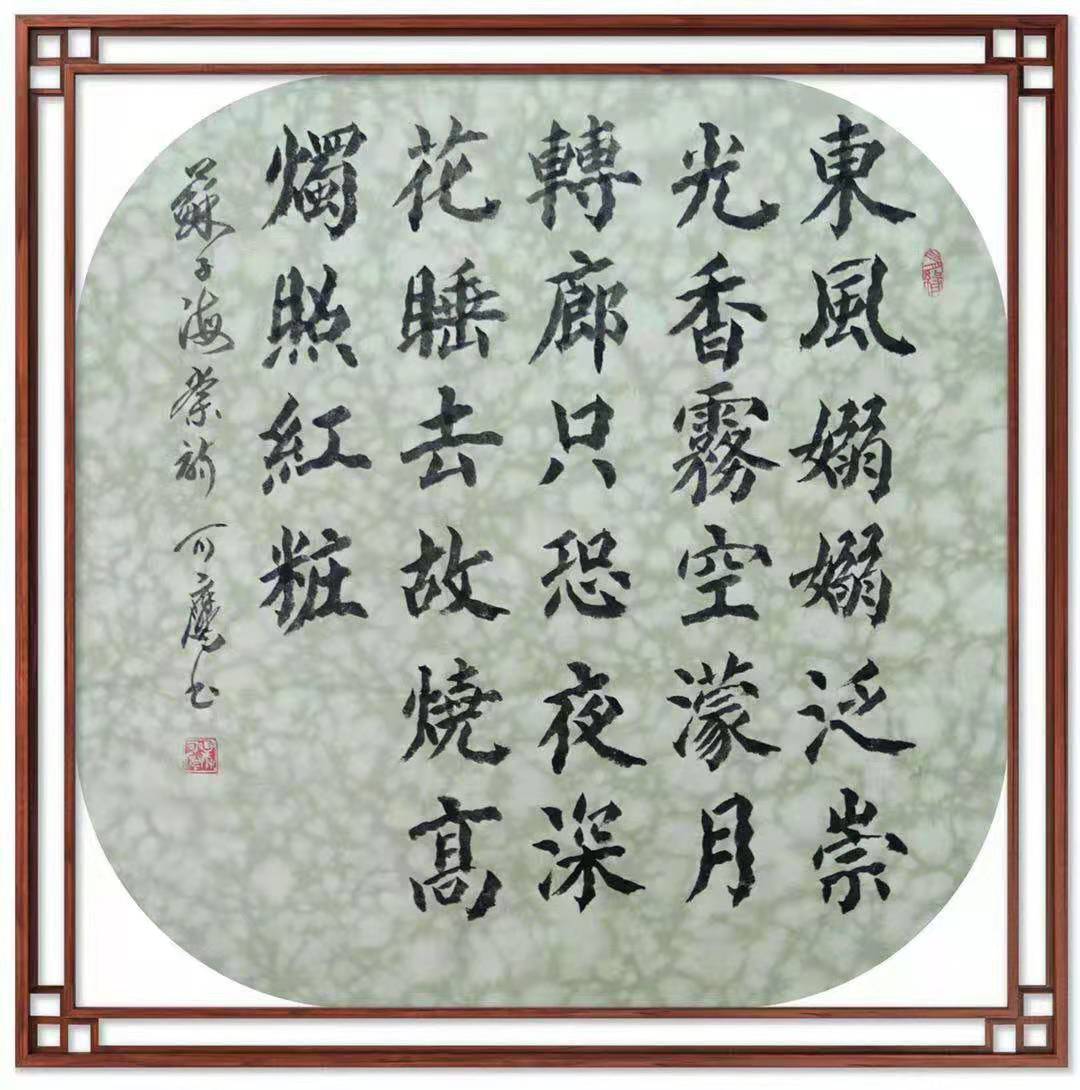 東風嫋嫋泛崇
光香霧空濛月
轉廊只恐夜深
花睡去故燒髙
燭照紅粧
蘇子海棠詩 可鷹书